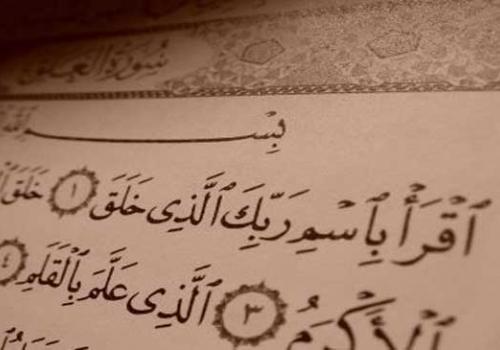 سُورَةُ العَلَق
بِسْمِ
ٱقْرَأْ بِٱسْمِ رَبِّكَ ٱلَّذِى خَلَقَ ١ خَلَقَ
ٱلْأَكْرَمُ ٣ ٱلَّذِى عَلَّمَ بِٱلْقَلَمِ ٤